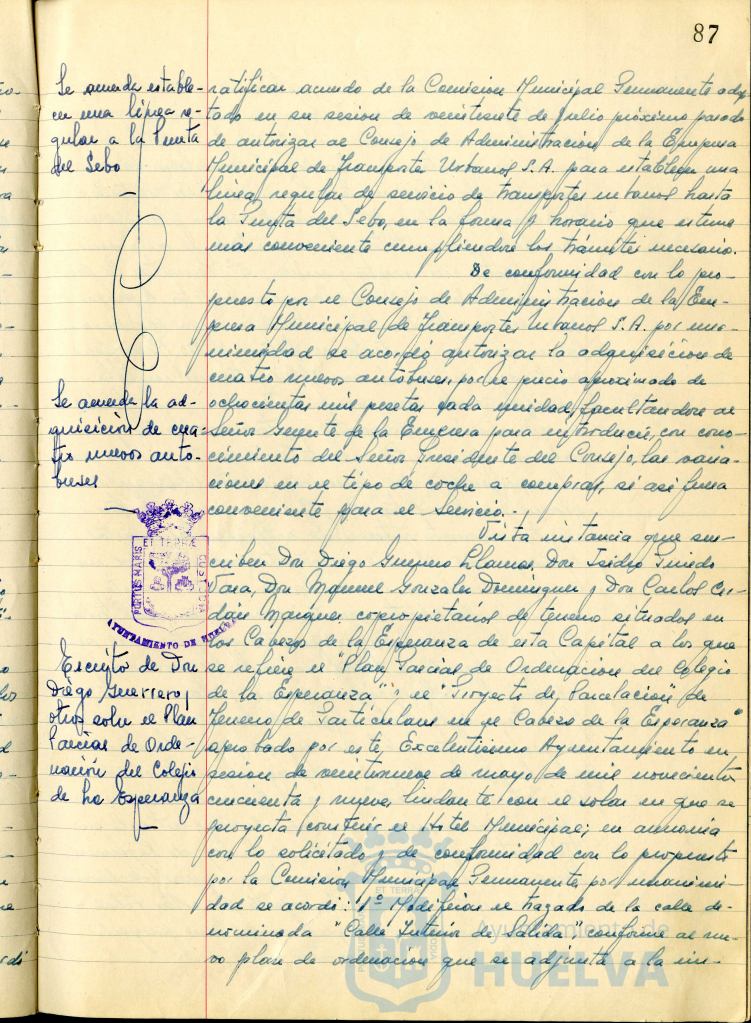 87
Se acuerda estable-
cer una línea re-
gular a la Punta
del Sebo
ratificar acuerdo de la Comision Municipal Permanente adop-
tado en su sesion de veintisiete de julio próximo pasado
de autorizar al Consejo de Administración de la Empresa
Municipal de Transportes Urbanos S.A. para establecer una
línea regular de servicio de transportes urbanos hasta
la Punta del Sebo, en la forma y horario que estime
más conveniente cumpliendose los trámites necesarios.
De conformidad con lo pro-
puesto por el Consejo de Administracion de la Em-
presa Municipal de Transportes Urbanos S.A. por una-
nimidad se acordó autorizar la adquisición de
cuatro nuevos autobuses, por el precio aproximado de
ochocientas mil pesetas cada unidad, facultandose al
Señor Gerente de la Empresa para introducir, con cono-
cimiento del Señor Presidente del Consejo, las varia-
ciones en el tipo de coche a comprar, si asi fuera
conveniente para el servicio.
Se acuerda la ad-
quisición de cua-
tro nuevos auto-
buses
PORTUS MARIS ET TERRÆ CUSTODIA
AYUNTAMIENTO DE HUELVA
Vista instancia que sus-
criben Don Diego Guerrero Llamas, Don Isidro Pinedo
Vara, Don Manuel Gonzalez Dominguez y Don Carlos Cor-
dón Marquez copropietarios de terreno situados en
los Cabezos de la Esperanza de esta Capital a los que
se refiere el "Plan Parcial de Ordenacion del Colegio
de la Esperanza" y el "Proyecto de Parcelación de
Terreno de Particulares en el Cabezo de la Esperanza"
aprobado por este Excelentisimo Ayuntamiento en
sesion de veintinueve de mayo de mil novecientos
cincuenta y nueve, lindante con el solar en que se
proyecta construir el Hotel Municipal; en armonia
con lo solicitado y de conformidad con lo propuesto
por la Comisión Municipal Permanente por unanimi-
dad se acordó: 1º Modificar el trazado de la calle de-
nominada "Calle Interior de Salida" conforme al nue-
vo plan de ordenacion que se adjunta a la ins-
Escrito de Don
Diego Guerrero y
otros sobre el Plan
Parcial de Orde-
nación del Colegio
de La Esperanza
Ayuntamiento de
HUELVA